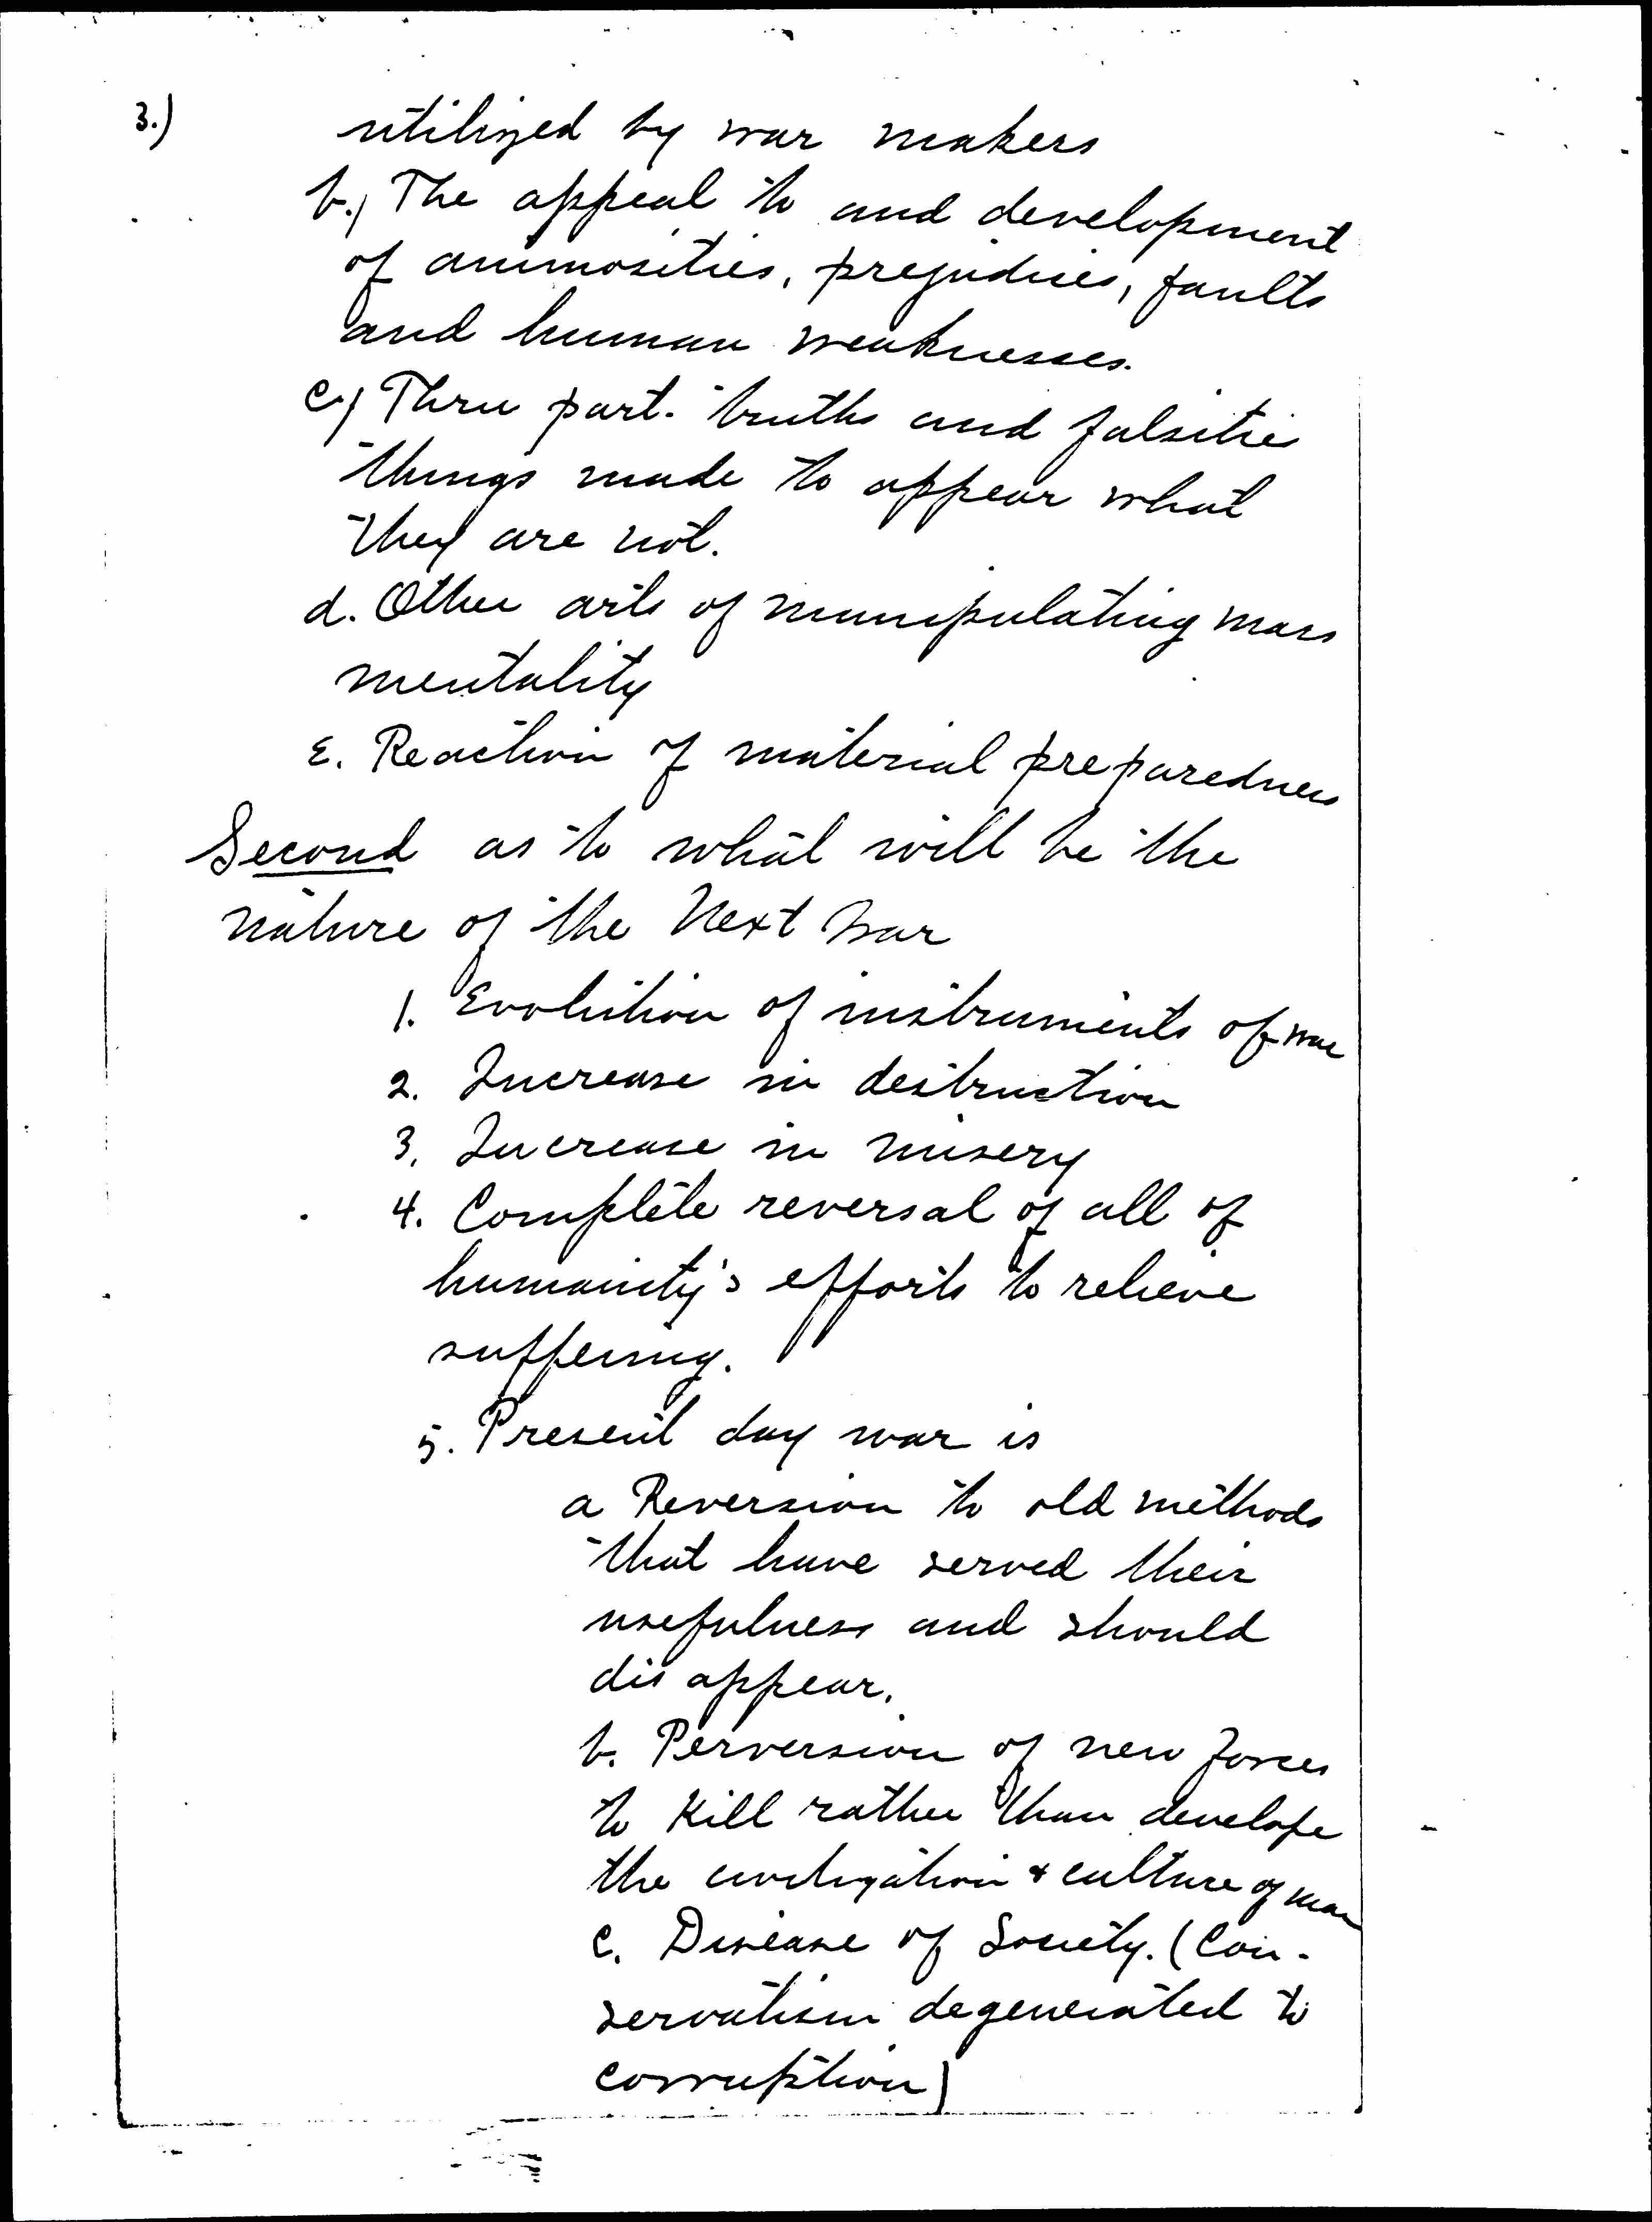 3.) utilized by war makers
b.) The appeal to and development
of animosities, prejudices, faults
and human weaknesses.
c.) Thru part-truths and falsities
things made to appear what
they are not.
d. Other arts of manipulating mass
mentality
E. Reaction of material preparedness
Second as to what will be the
nature of the Next War
1. Evolution of instruments of war
2. Increase in destruction
3. Increase in misery
4. Complete reversal of all of
humanity's efforts to relieve
suffering.
5. Present day war is
a Reversion to old methods
that have served their
usefulness and should
dis appear.
b. Perversion of new forces
to Kill rather than develope
the civilization & culture of man
c. Disease of Society. (Con-
servatism degenerated to
corruption)